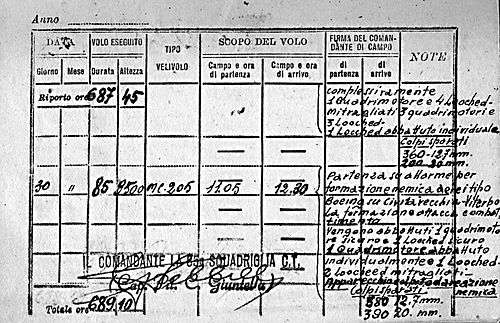 Anno
DATA
VOLO ESEGUITO
TIPO VELIVOLO
SCOPO DEL VOLO
FIRMA DEL COMANDANTE DI CAMPO
NOTE
Giorno Mese Durata Altezza
Campo e ora di partenza
Campo e ora di arrivo
di partenza
di arrivo
Riporto ore 687 45
complessivamente
1 Quadrimotore e 4 Looched-
mitragliati 3 quadrimotori e
3 Looched-
1 Looched abbattuto individuale
Colpi sparati
360-12.7 mm.
200-20 mm.
30 " 85 8500 MC-205 11.05 12,30
Partenza su allarme per
formazione nemica aerei tipo
Boeing su Civitavecchia Viterbo
La formazione attacca combat
timento
Vengono abbattuti 1 quadrimoto
re sicuro e 1 Looked sicuro
1 Quadrimotore abbattuto
individualmente e 1 Looched-
2 Looched mitragliati-
Colpi sparati
nemica
350 12.7 mm.
390 20. mm.
COMANDANTE LA SQUADRIGLIA C.T.
(Cap. Pil. C. Giuntella)
Totale ore 689,10